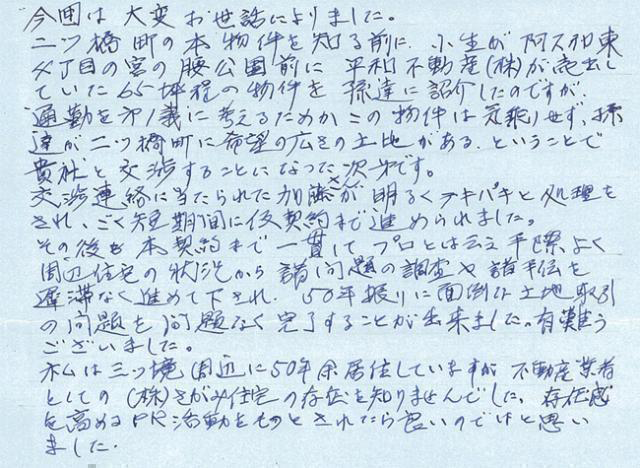 今回は大変お世話になりました。
二ツ橋町の本物件を知る前に、小生が阿久和東
4丁目の宮の腰公園前に平和不動産(株)が売出し
ていた65坪程の物件を孫達に紹介したのですが、
通勤を第1義に考えるためかこの物件は気乗りせず、孫
達が二ツ橋町に希望の広さの土地がある、ということで
貴社と交渉することになった次第です。
交渉連絡に当たられた加藤さんが明るくテキパキと処理を
され、ごく短期間に仮契約まで進められました。
その後も本契約まで一貫してプロとは云え手際よく
周辺住宅の状況から諸問題の調査や諸手伝を
遅滞なく進めて下され、50年振りに面倒な土地取引
の問題を問題なく完了することが出来ました。有難う
ございました。
私は三ツ境周辺に50年余居住していますが不動産業者
としての(株)さがみ住宅の存在を知りませんでした。存在感
を高めるPR活動をもっとされたら良いのではと思い
ました。